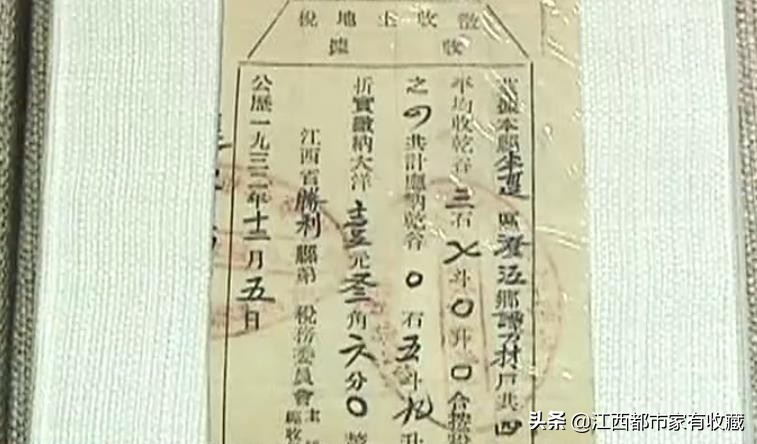 徵收土地稅
收據
茲據本縣區澄江鄉村戶共四
平均收乾谷三石〤斗〇升〇合按稅
之四共計應納乾谷〇石五斗九升
折實繳納大洋壹元叁角六分〇整
江西省勝利縣第 稅務委員會主
公歷一九三二年十二月五日
头条 @江西都市家有收藏